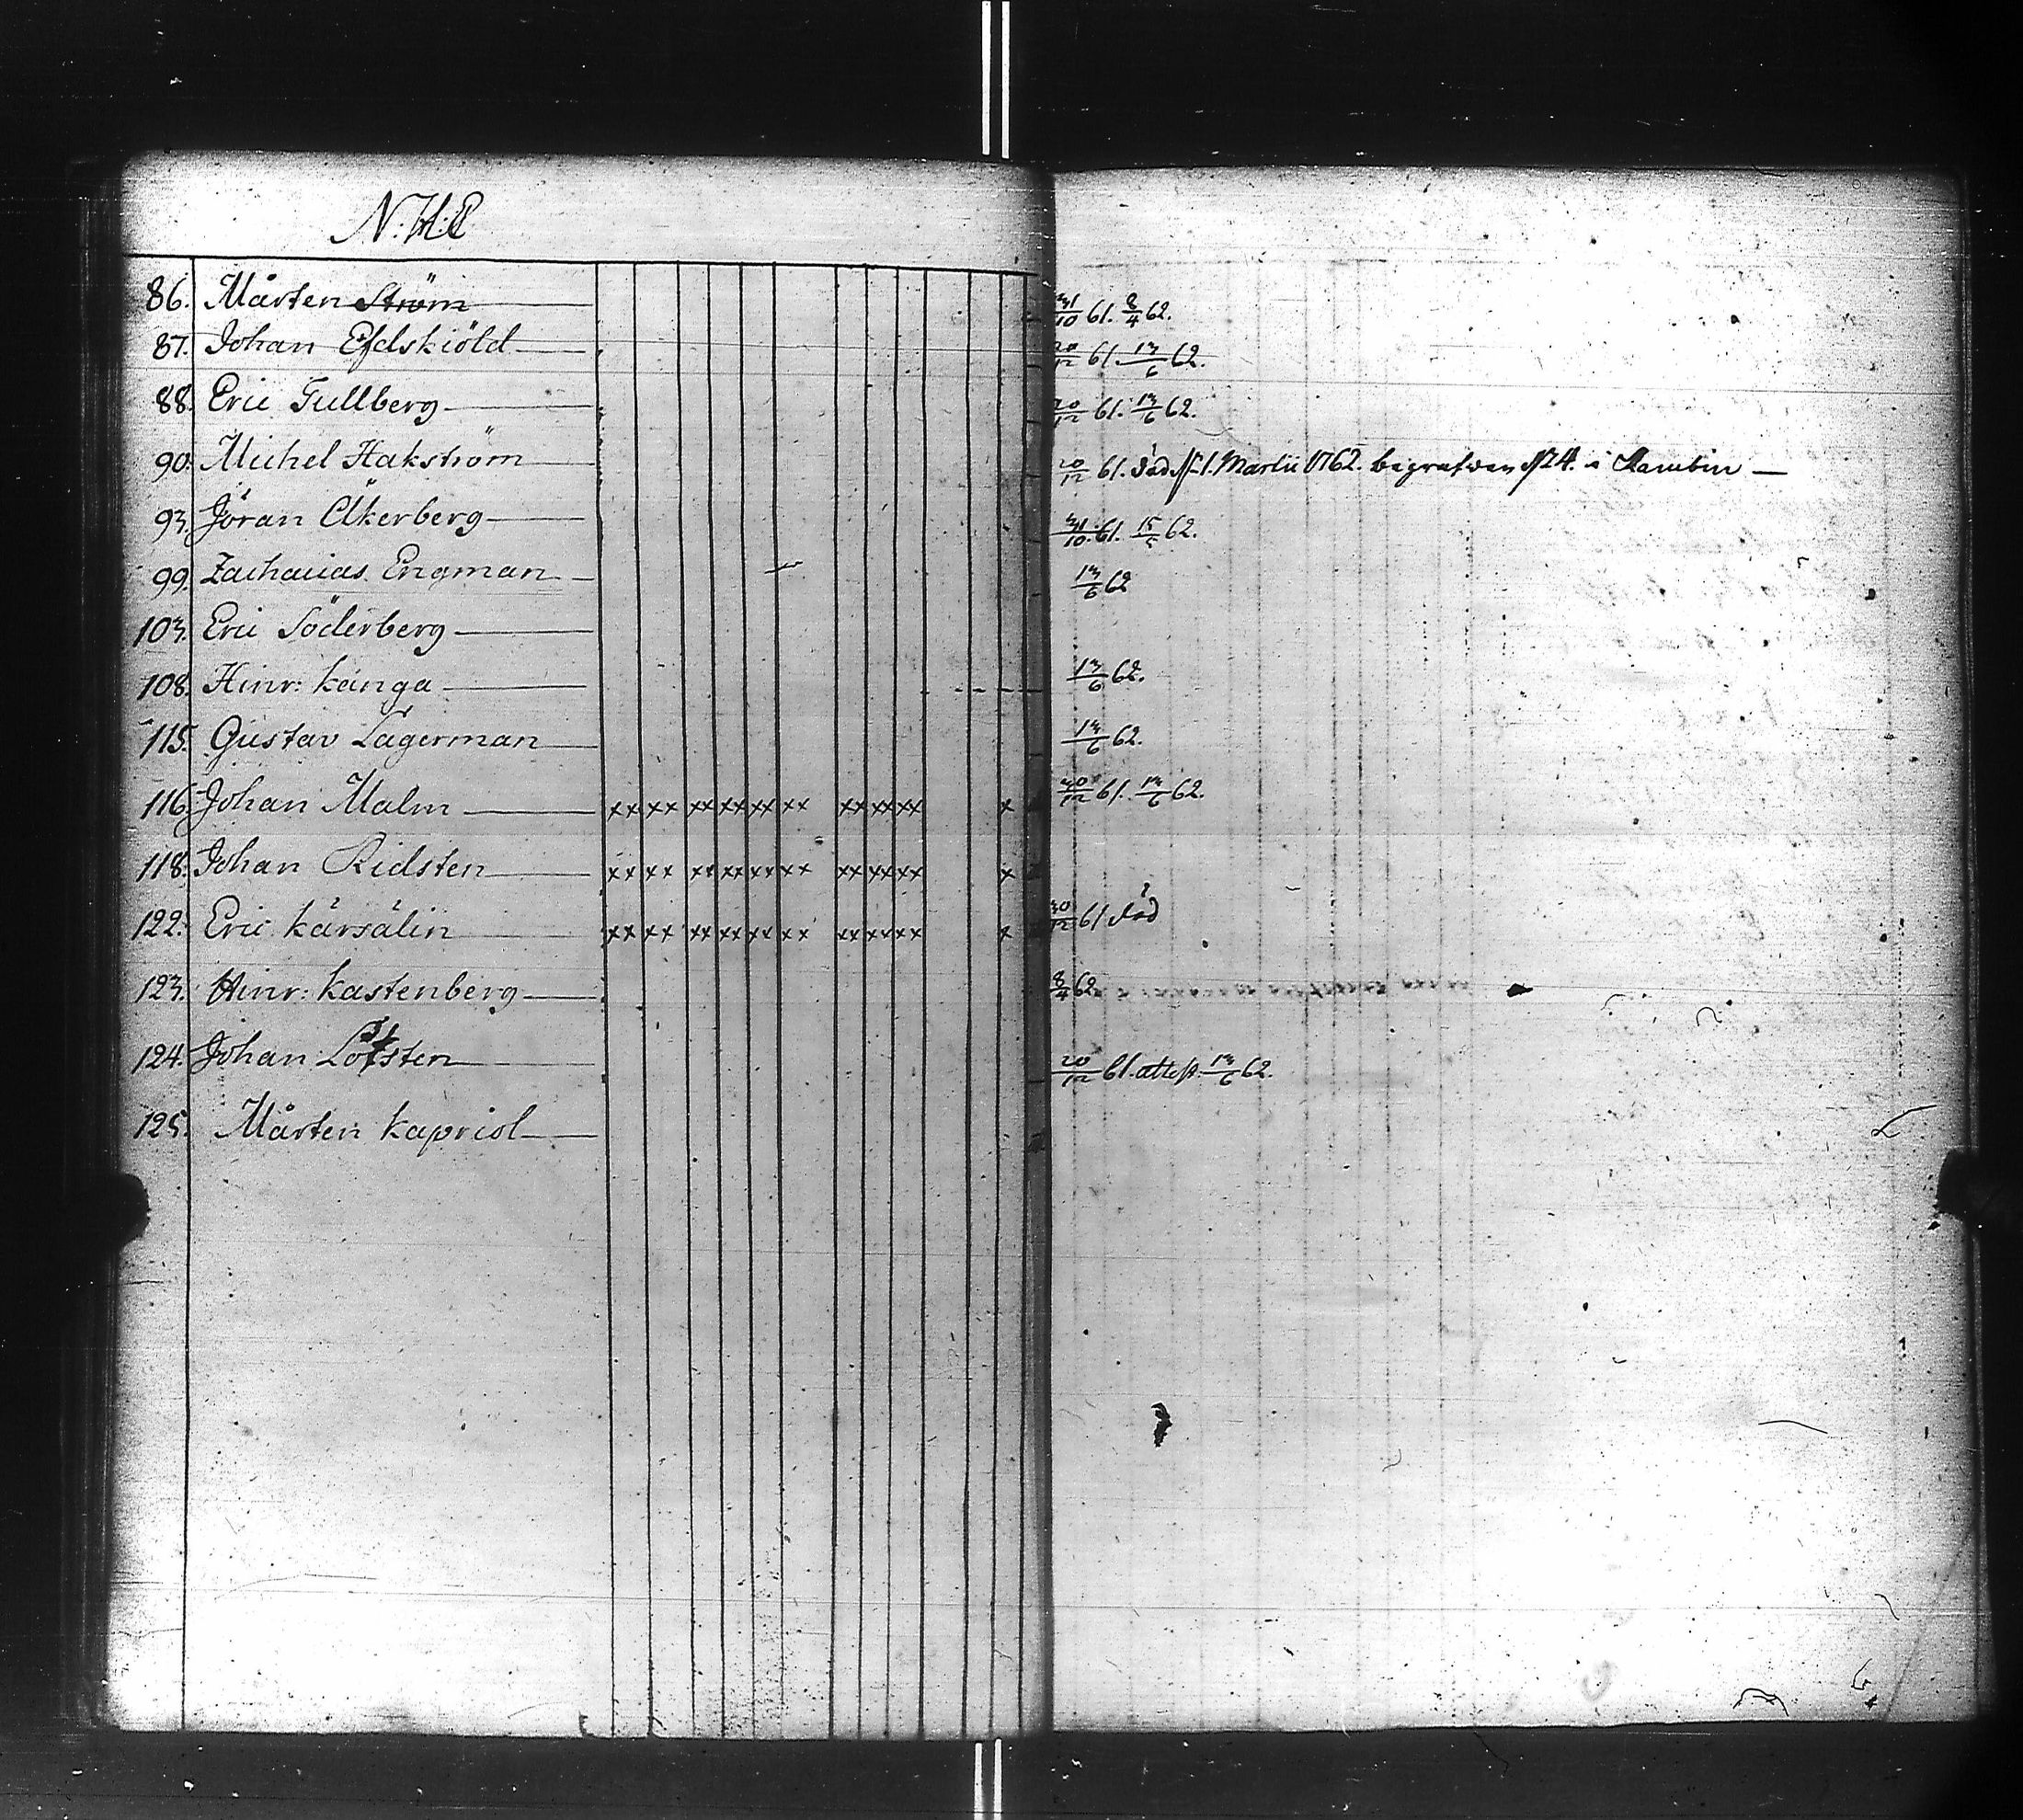 N:H:C
86. Mårten Ström 31/10 61. 8/4 62.
87. Johan Efdskiöld 20/12 61. 13/6 62.
88. Eric Tullberg 20/12 61. 13/6 62.
90. Michel Hakström 20/12 61. död d. 1. Martii 1762. begrafwen d 24. i
93. Jöran Åkerberg 31/10. 61. 15/5 62.
99. Zacharias Engman 13/6 62
103. Eric Söderberg
108. Hinr: Känga 13/6 62.
115. Gustav Lagerman 13/6 62.
116. Johan Malm xx xx xx xx xx xx xx xx xx x 20/12 61. 13/6 62.
118. Johan Ridsten xx xx xx xx xx xx xx xx xx x
122. Eric Kärsälin xx xx xx xx xx xx xx xx xx x 61 död
123. Hinr: Kastenberg 8/4 62
124. Johan 20/12 61. attest. 13/6 62.
125. Mårten Kapriol